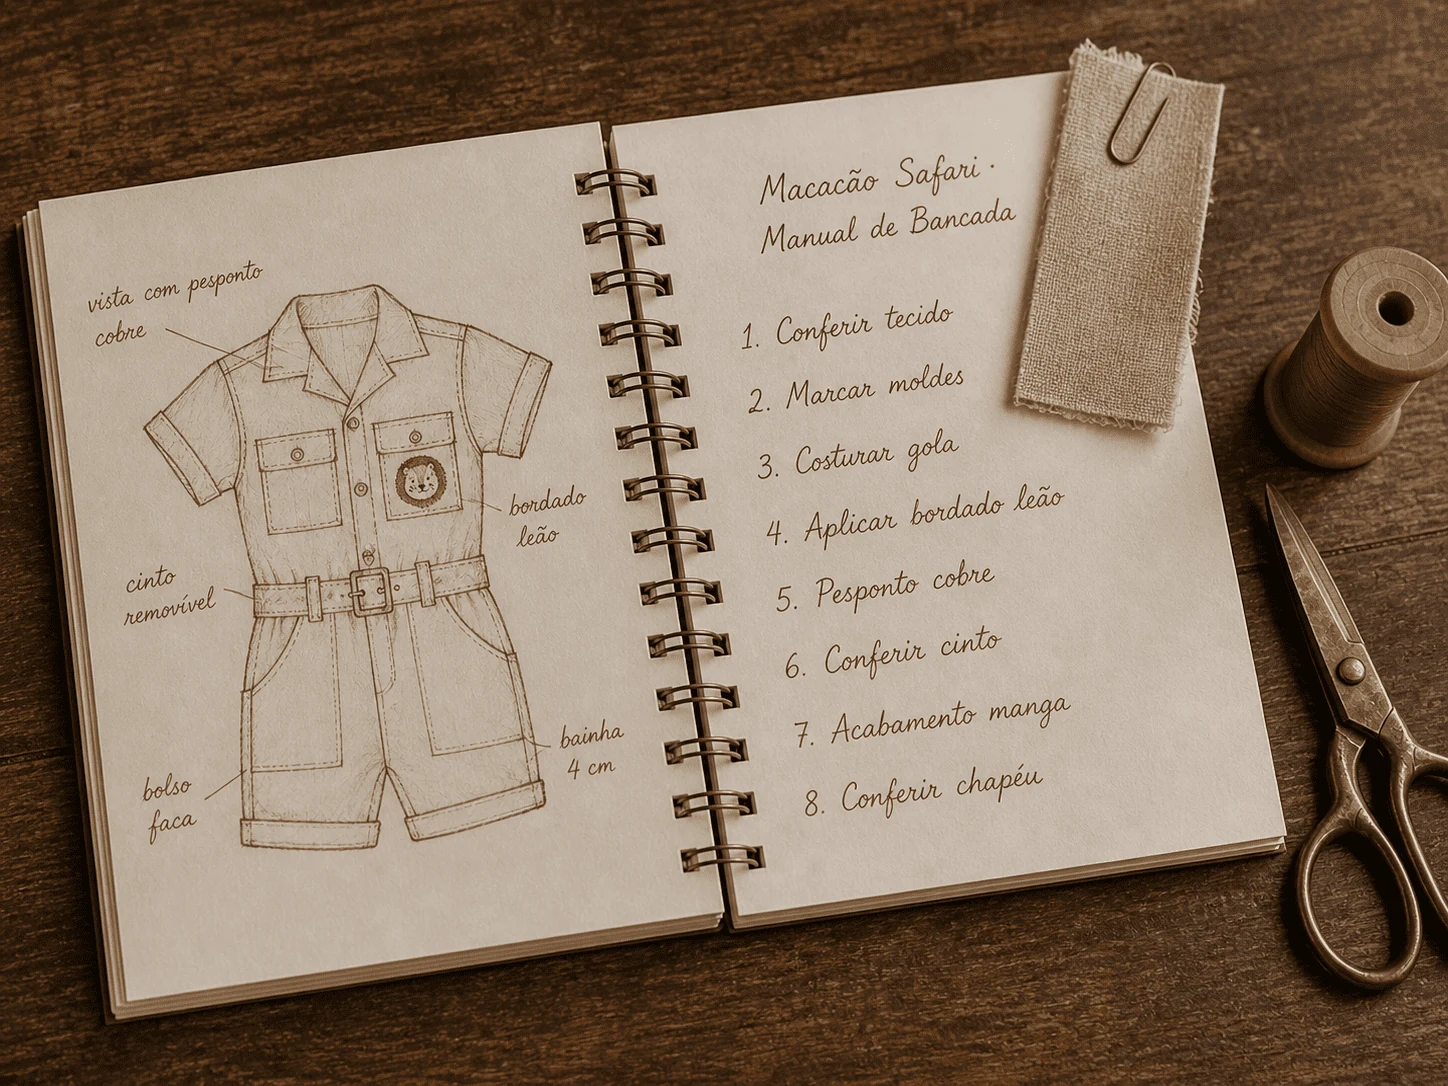 vista com pesponto
cobre
bordado
leão
cinto
removível
bainha
4 cm
bolso
faca
Macacão Safari ·
Manual de Bancada
1. Conferir tecido
2. Marcar moldes
3. Costurar gola
4. Aplicar bordado leão
5. Pesponto cobre
6. Conferir cinto
7. Acabamento manga
8. Conferir chapéu